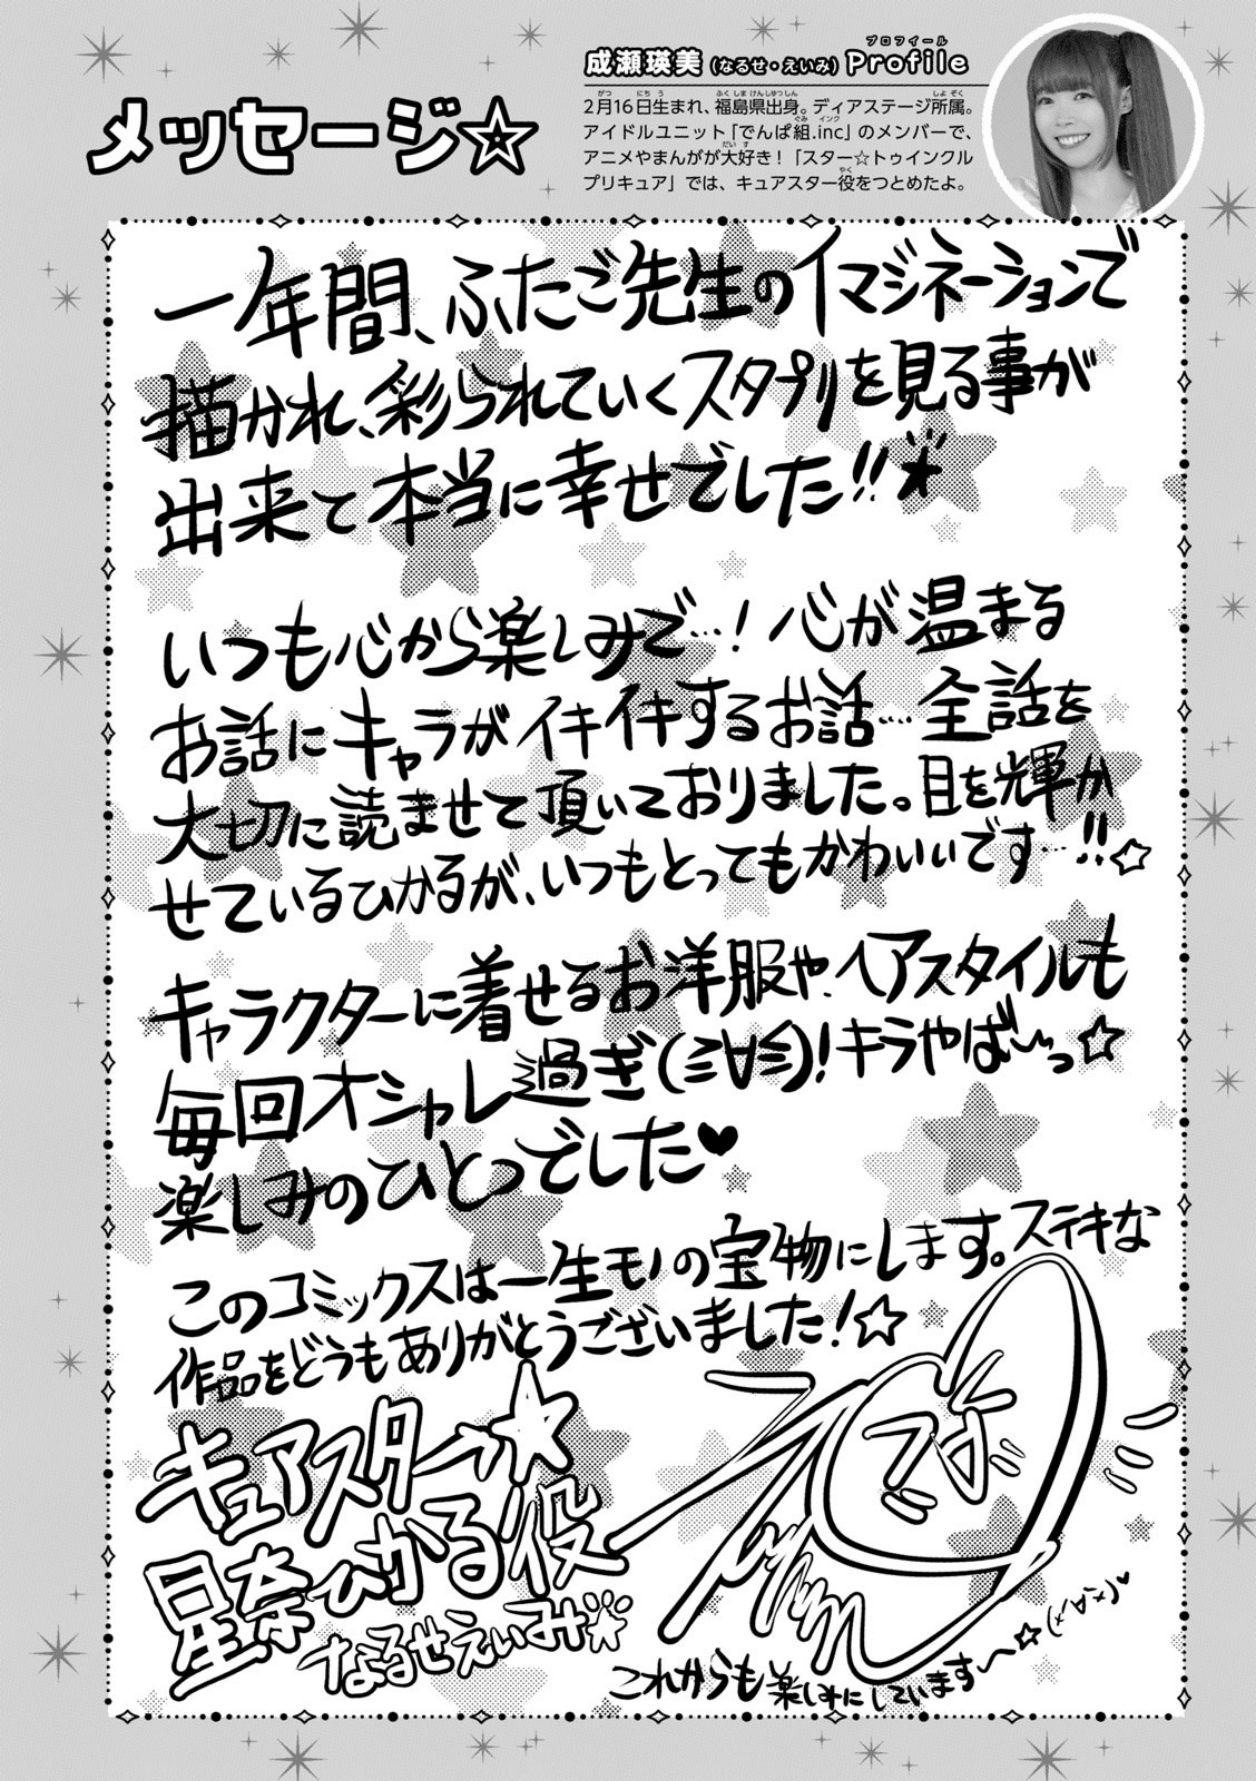 メッセージ☆
成瀬瑛美（なるせ・えいみ）Profile
プロフィール
2月16日生まれ、福島県出身。ディアステージ所属。
アイドルユニット「でんぱ組.inc」のメンバーで、
アニメやまんがが大好き！「スター☆トゥインクル
プリキュア」では、キュアスター役をつとめたよ。
一年間、ふたご先生のイマジネーションで
描かれ、彩られていくスタプリを見る事が
出来て本当に幸せでした!!★
いつも心から楽しみで…！心が温まる
お話にキャラがイキイキするお話…全話を
大切に読ませて頂いておりました。目を輝か
せているひかるが、いつもとってもかわいいです…!!☆
キャラクターに着せるお洋服や、ヘアスタイルも
毎回オシャレ過ぎ(ミ∀ミ)!キラやば〜っ☆
楽しみのひとつでした♥
このコミックスは一生モノの宝物にします。ステキな
作品をどうもありがとうございました！☆
キュアスター★
星奈ひかる役
なるせえいみ
これからも楽しみにしています〜☆